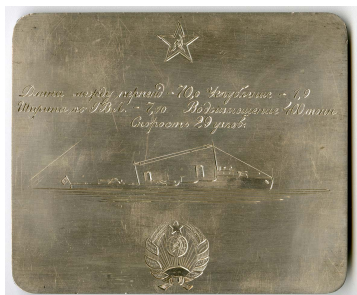 Длина между перпенд - 70,0 Углубление - 4,0
Ширина по Г.В.Л. - 7,90 Водоизмещение 400 тонн
Скорость 20 узлов